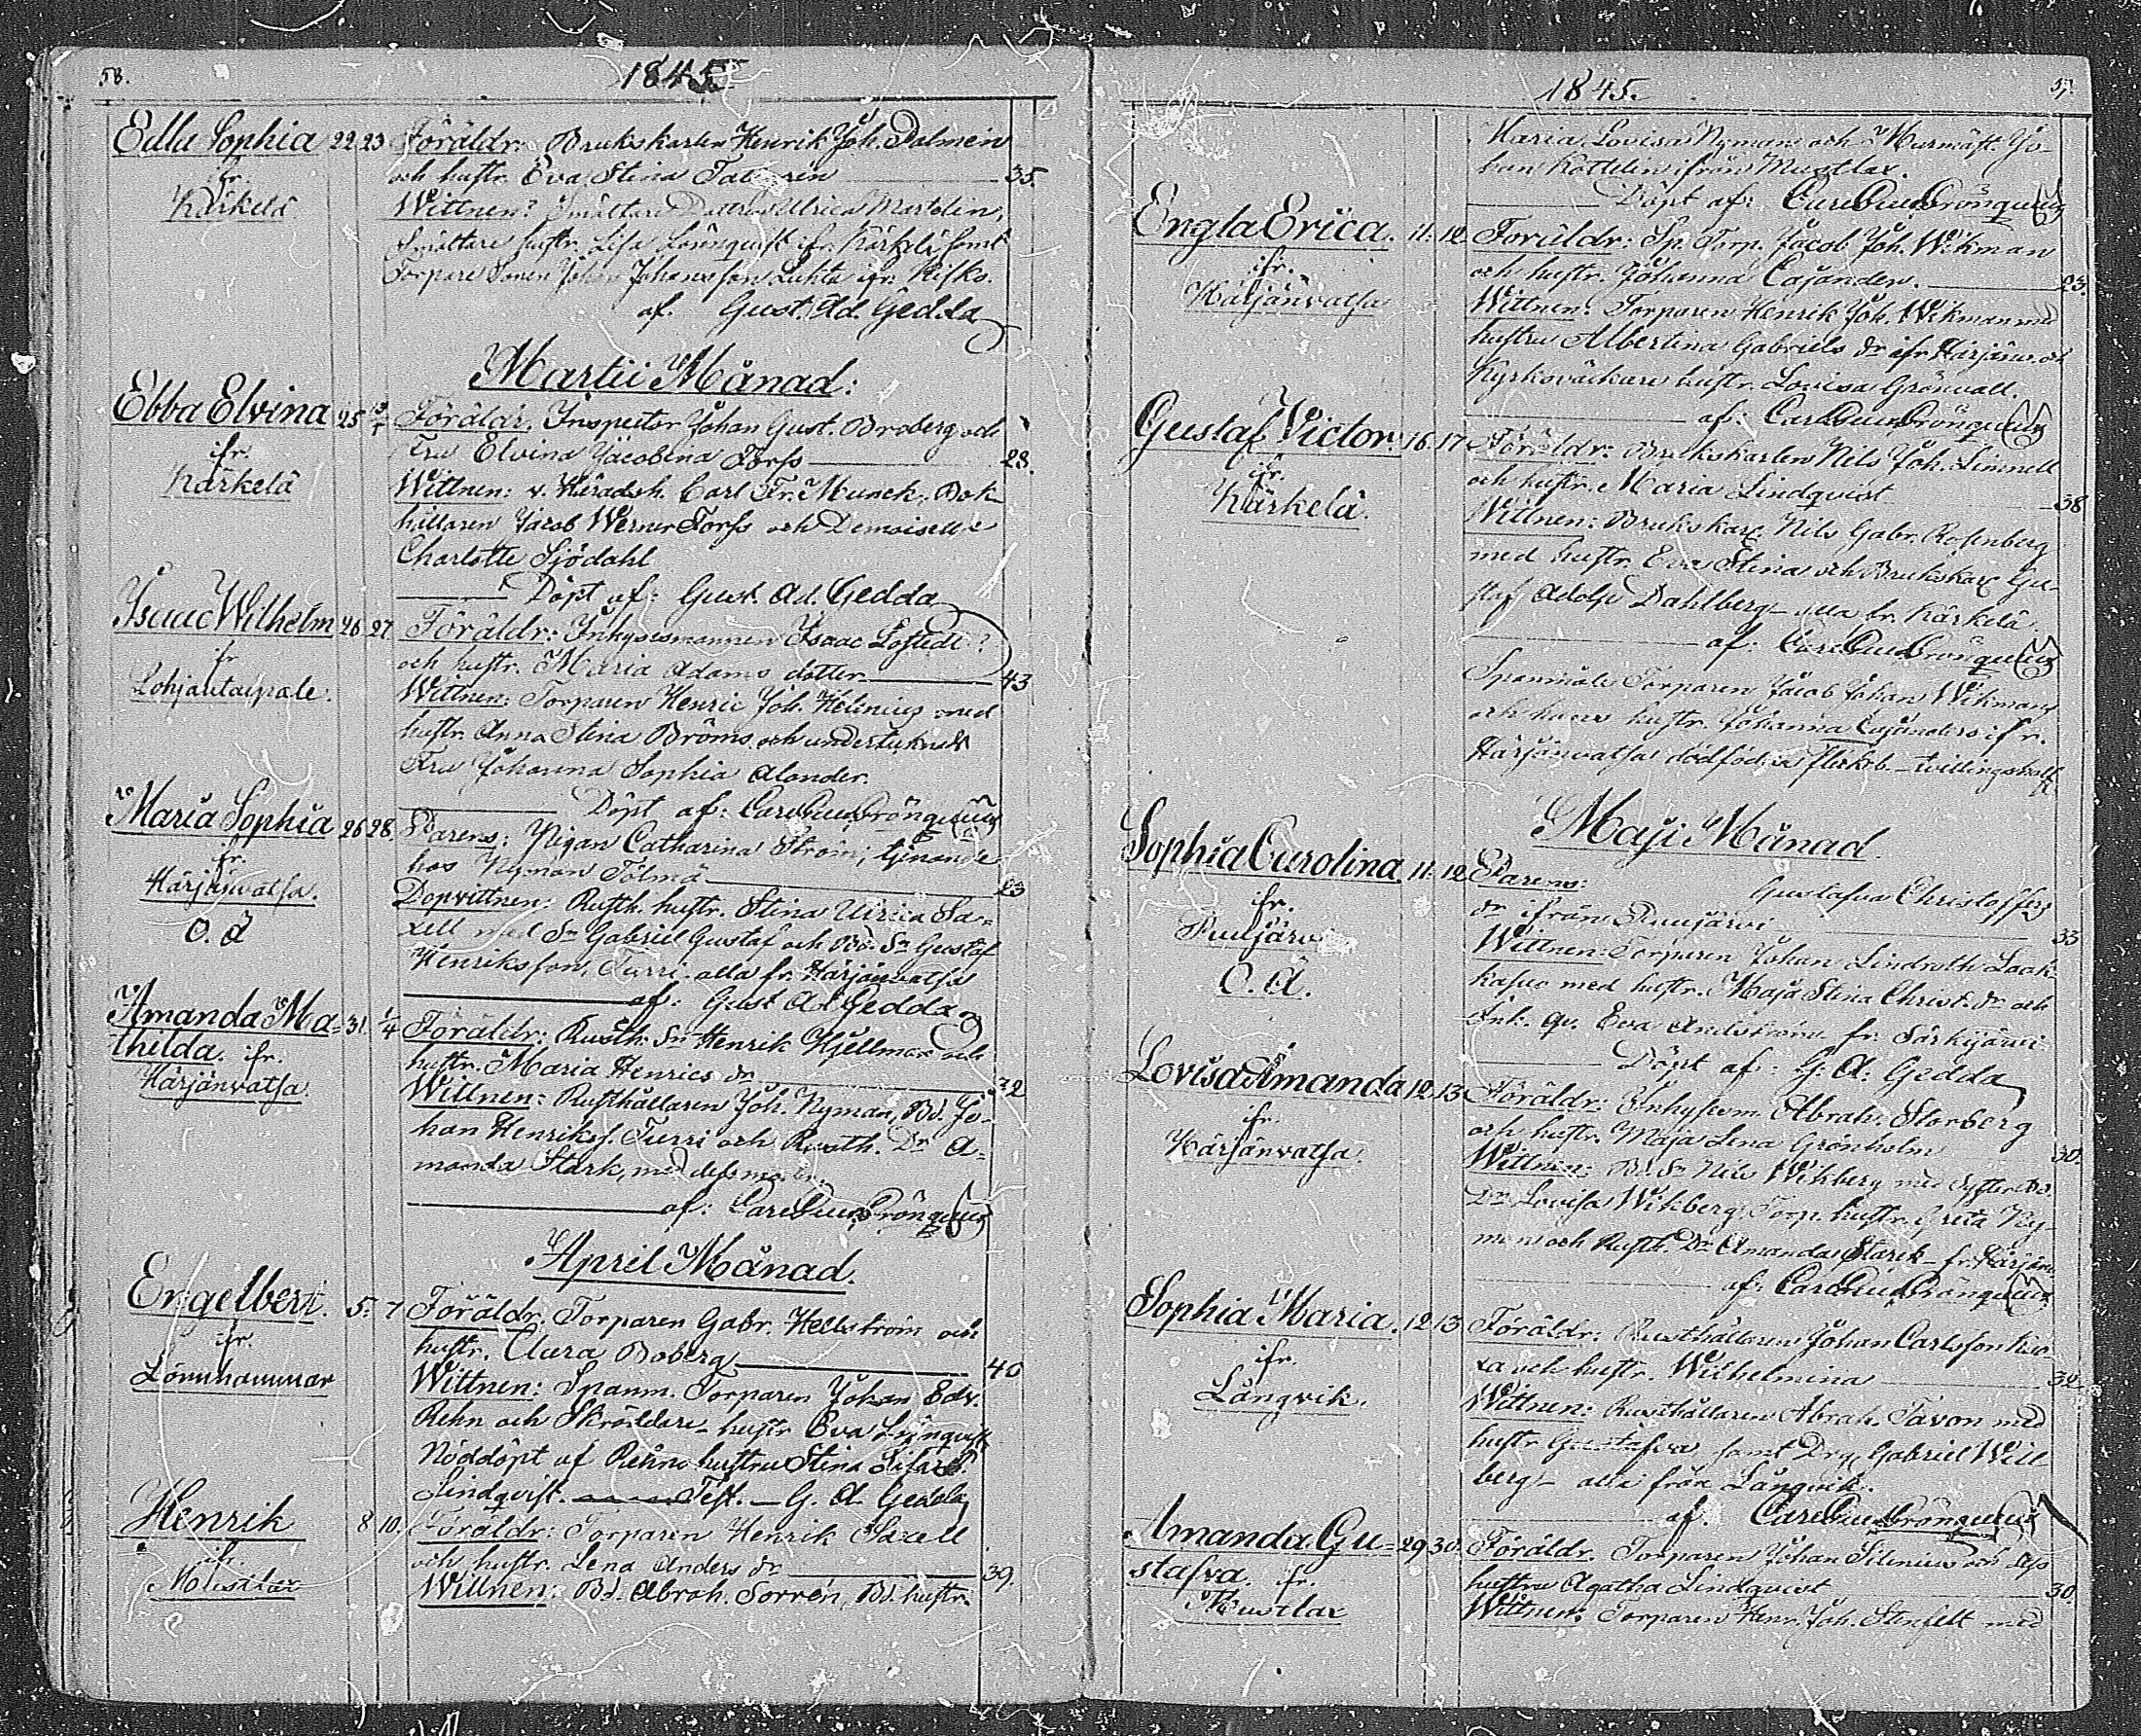 58.
1845
Edla Sophia 22 23 Föräldr: Brukskarlen Henrik Joh. Dalmein
ifr. och hustr. Eva Stina 35.
Kärkelä Wittnen: Smältare Dottren Ulrica Martelin,
Smältare hustr. Lisa Lönnquist ifr. Kärkelä samt
Torpare Sonen Johan Johansson Luhta ifr. Kisko.
af. Gust. Ad. Gedda
Martii Månad:
Ebba Elvina 25 Föräldr. Inspector Johan Gust. Broberg och
ifr. Fru Elvina Jacobina Forss 28.
Kärkelä Wittnen: v. Häradsh. Carl Fr. Munck, Bok
hållaren Jacob Werner Forss och Demoiselle
Charlotte Sjödahl
Döpt af: Gust. Ad. Gedda
Isaac Wilhelm 26 27 Föräldr: Inhysesmannen Isaac Lofstedt?
ifr. och hustr. Maria Adams dotter 43
Lohjantaipale. Wittnen: Torparen Henric Joh. Helenius med
hustr. Anna Stina Bröms och undertecknads
Fru Johanna Sophia Alander.
Döpt af: Carl
Maria Sophia 26 28. Parens: Pigan Catharina Ström, tjenande
ifr. hos Nyman Tölmä 23
Härjänvatsa. Dopvittnen: Rusth. hustr. Stina Ulrica Sa-
O. Ä xell med Sn Gabriel Gustaf och Bd. Sn Gustaf
Henriksson, Turri. alla fr. Härjänvatsa
af: Gust Ad Gedda
Amanda Ma- 31. 1/4 Föräldr: Rusth. Sn Henrik Hjellman och
thilda. ifr. hustr. Maria Henrics dr 32
Härjänvatsa. Wittnen: Rusthållaren Joh. Nyman, Bd. Jo-
han Henrikss. Turri och Rusth. Dr A-
manda Stark, med dess moder.
af: Carl
April Månad.
Engelbert. 5. 7 Föräldr. Torparen Gabr. Hellström och
ifr. hustr. Clara Boberg 40
Lönnhammar Wittnen: Spanm. Torparen Johan Edv.
Rehn och Skräddare hustr Eva Lönqvist
Nöddöpt af Rehns hustru Stina Lisa
Lindqvist. Test. G. A. Gedda
Henrik 8 10. Föräldr: Torparen Henrik Saxell
ifr. och hustr. Lena Anders dr 39.
Mustlax Wittnen: Bd. Abrah. Sorrén, Bd. hustr.
1845. 59.
Maria Lovisa Nyman och Murmäst. Jo-
han Kottelin ifrån Mustlax.
Döpt af: Carl
Engla Erica. 11. 12. Föräldr: Sp. Torp. Jacob Joh. Wikman
ifr. och hustr. Johanna Cajander. 23.
Härjänvatsa Wittnen: Torparen Henrik Joh. Wikman med
hustru Albertina Gabriels dr ifr. Härjänv. och
Kyrkoväktare hustr. Lovisa Grönvall.
af: Carl
Gustaf Victor. 16. 17 Föräldr: Brukskarlen Nils Joh. Linnell
ifr. och hustr. Maria Lindqvist 38
Kärkelä. Wittnen: Brukskarl. Nils Gabr. Rosenberg
med hustr. Eva Stina och Brukskarl Gu-
staf Adolf Dahlberg alla br. Kärkelä
af: Carl
Spanmåls Torparen Jacob Johan Wikmans
och hans hustr. Johanna Cajanders ifr.
Härjänvatsa dödfödda flickb. tvillingshalft
Maji Månad.
Sophia Carolina 11. 12 Parens: Gustafva Christoffers
ifr. dr ifrån 33
Wittnen: Torparen Johan Lindroth Laak
O. Ä. kasuo med hustr. Maja Stina Christ. dr och
Enk. qv. Eva Andström fr. Särkijärvi.
Döpt af: G. A. Gedda
Lovisa Amanda 12. 13. Föräldr: Inhysesm. Abrah. Storberg
ifr. och hustr. Maja Lena Grönholm 30.
Härjänvatsa Wittnen: Bd. Sn Nils Wikberg med syster Bd.
Dr Lovisa Wikberg. Torp. hustr. Greta Ny-
man och Rusth. Dr Amanda Starck fr. Härjänv.
af: Carl
Sophia Maria. 12. 13 Föräldr: Rusthållaren Johan Carlsson
ifr. och hustr. Wilhelmina 32
Långvik. Wittnen: Rusthållaren Abrah. Tavon med
hustr Gustafva samt Drg. Gabriel Will
berg alla ifrån Långvik.
af. Carl
Amanda Gu- 29 30. Föräldr. Torparen Johan Silenius och dess
stafva. ifr. hustru Agatha Lindqvist 30
Mustlax Wittnen: Torparen Henr. Joh. Stenfelt med